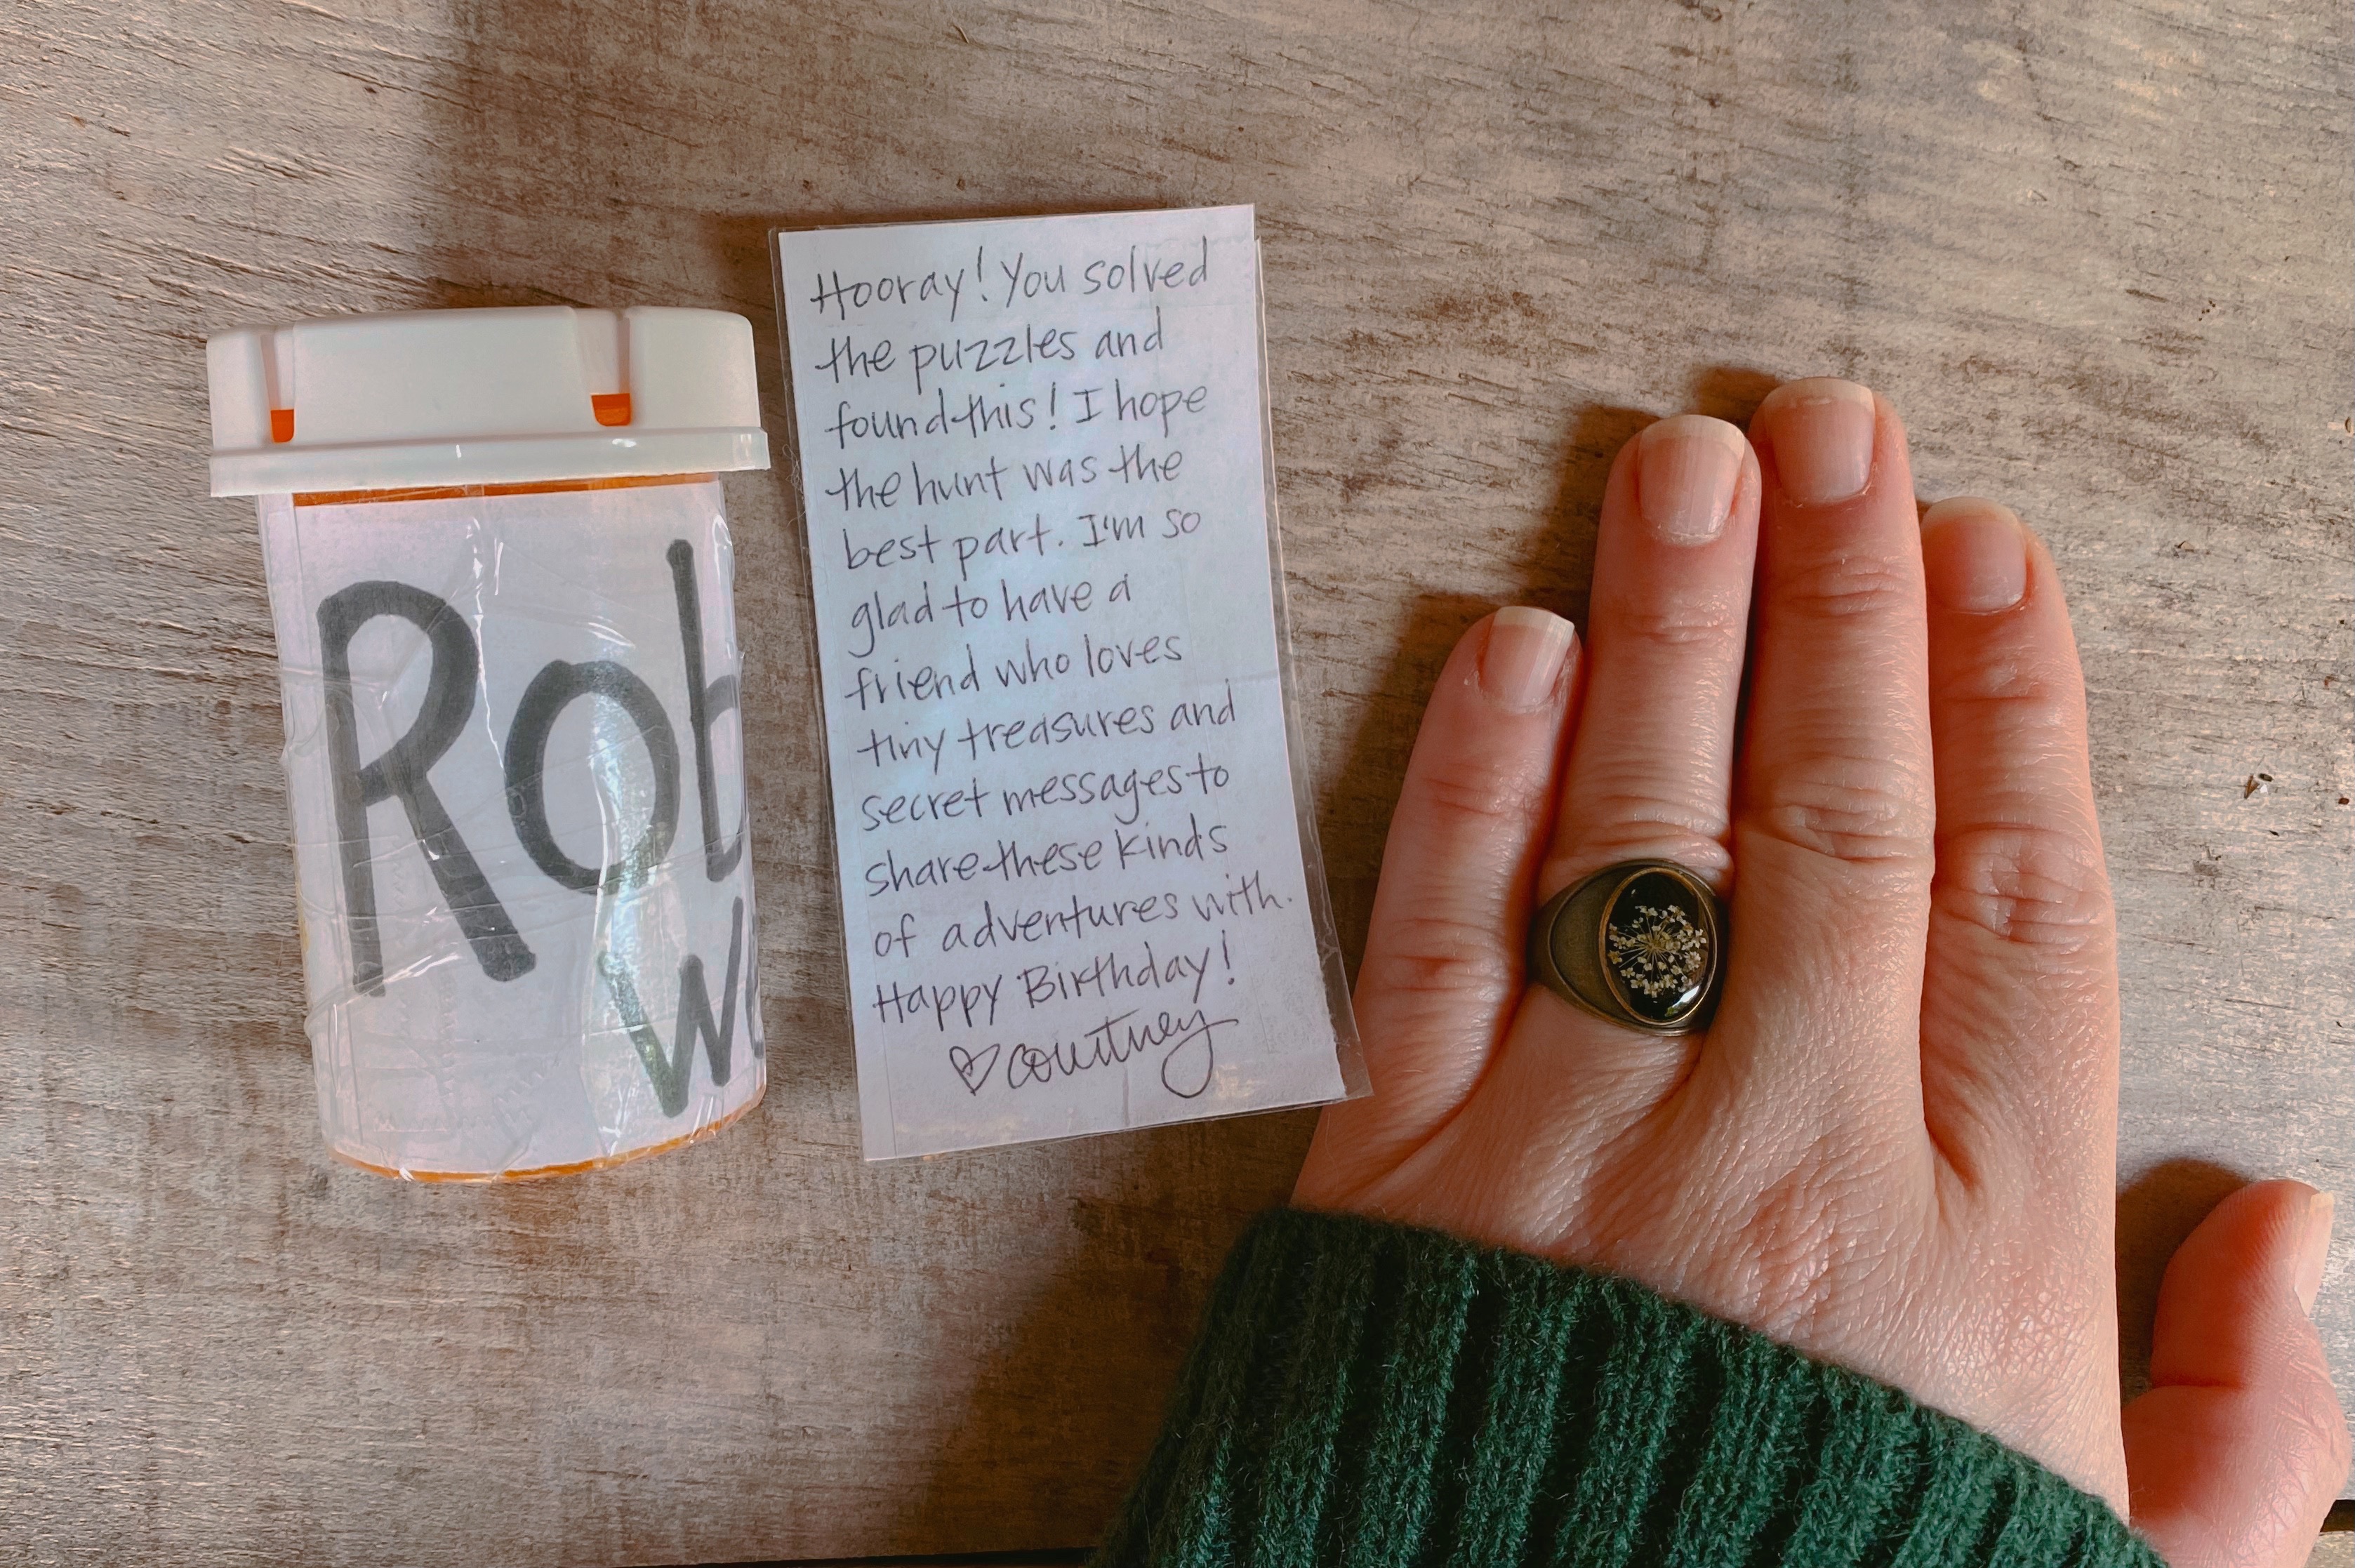 Rob
Hooray! You solved
the puzzles and
found this! I hope
the hunt was the
best part. I'm so
glad to have a
friend who loves
tiny treasures and
secret messages to
share these kinds
of adventures with.
Happy Birthday!
♡ Courtney